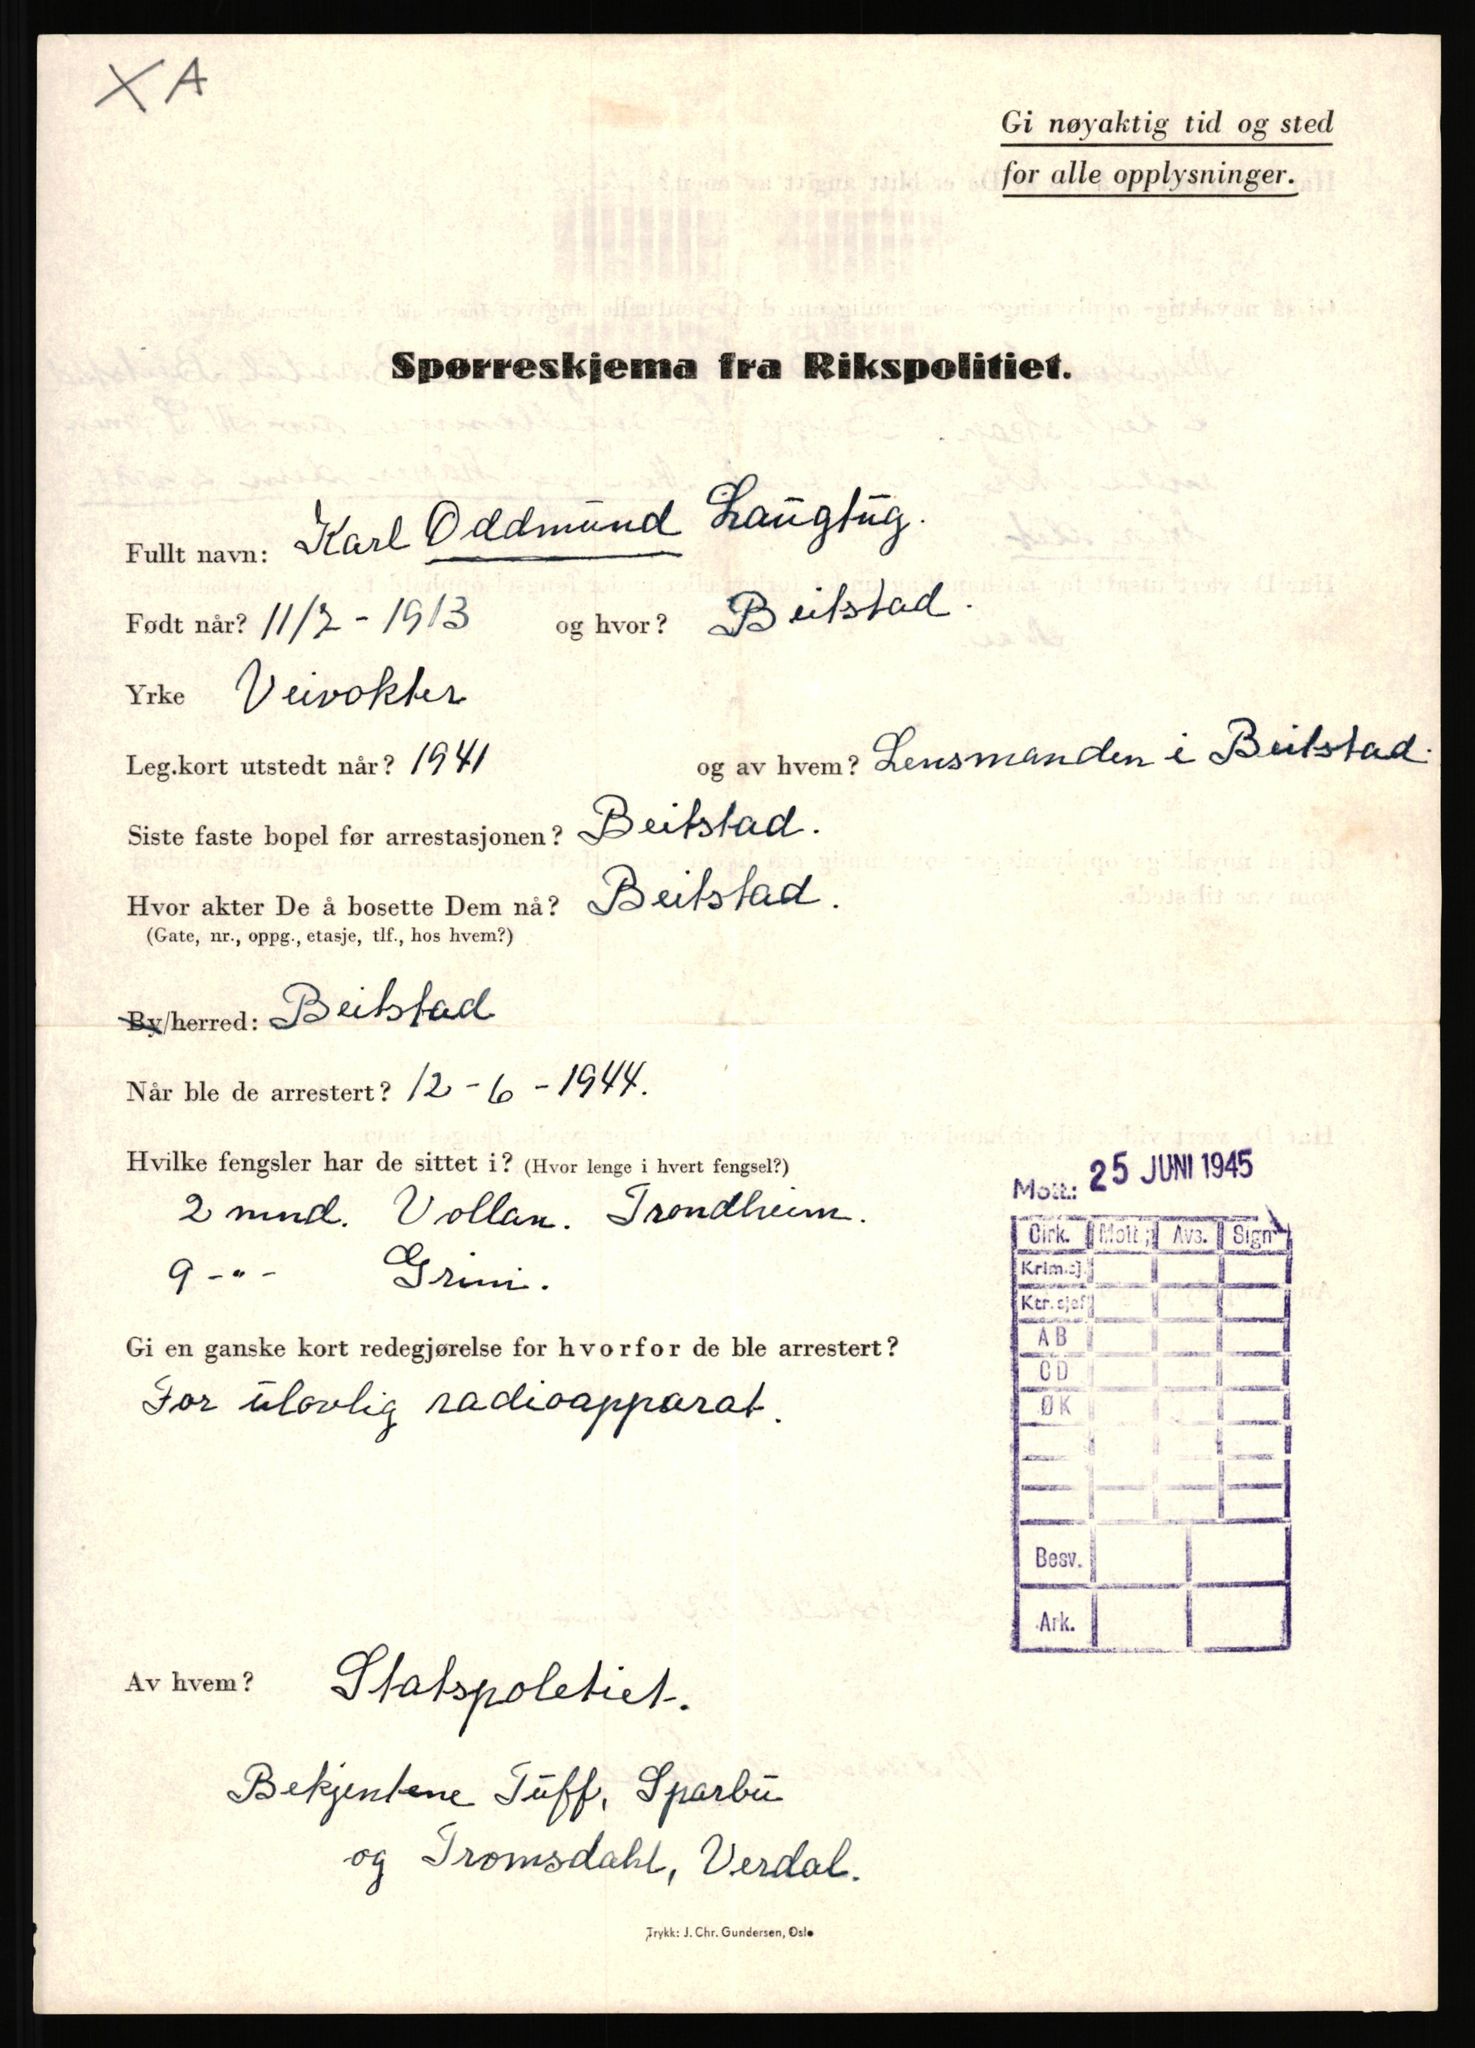 XA
Gi nøyaktig tid og sted
for alle opplysninger.
Spørreskjema fra Rikspolitiet.
Fullt navn: Karl Oddmund Langtug.
Født når? 11/2 - 1913 og hvor? Beitstad.
Yrke Veivokter
Leg.kort utstedt når? 1941 og av hvem? Lensmanden i Beitstad.
Siste faste bopel før arrestasjonen? Beitstad.
Hvor akter De å bosette Dem nå? Beitstad.
(Gate, nr., oppg., etasje, tlf., hos hvem?)
By/herred: Beitstad
Når ble de arrestert? 12 - 6 - 1944.
Hvilke fengsler har de sittet i? (Hvor lenge i hvert fengsel?)
Mott.: 25 JUNI 1945
2 mnd. Vollan. Trondheim.
9 -"- Grini.
Cirk. Mott.; Avs. Sign
Krim.sj.
Ktr.sjef
A B
C D
Ø K
Besv.
Ark.
Gi en ganske kort redegjørelse for hvorfor de ble arrestert?
For ulovlig radioapparat.
Av hvem? Statspoletiet.
Bekjentene Tuff, Sparbu
og Tromsdahl, Verdal.
Trykk: J. Chr. Gundersen, Oslo